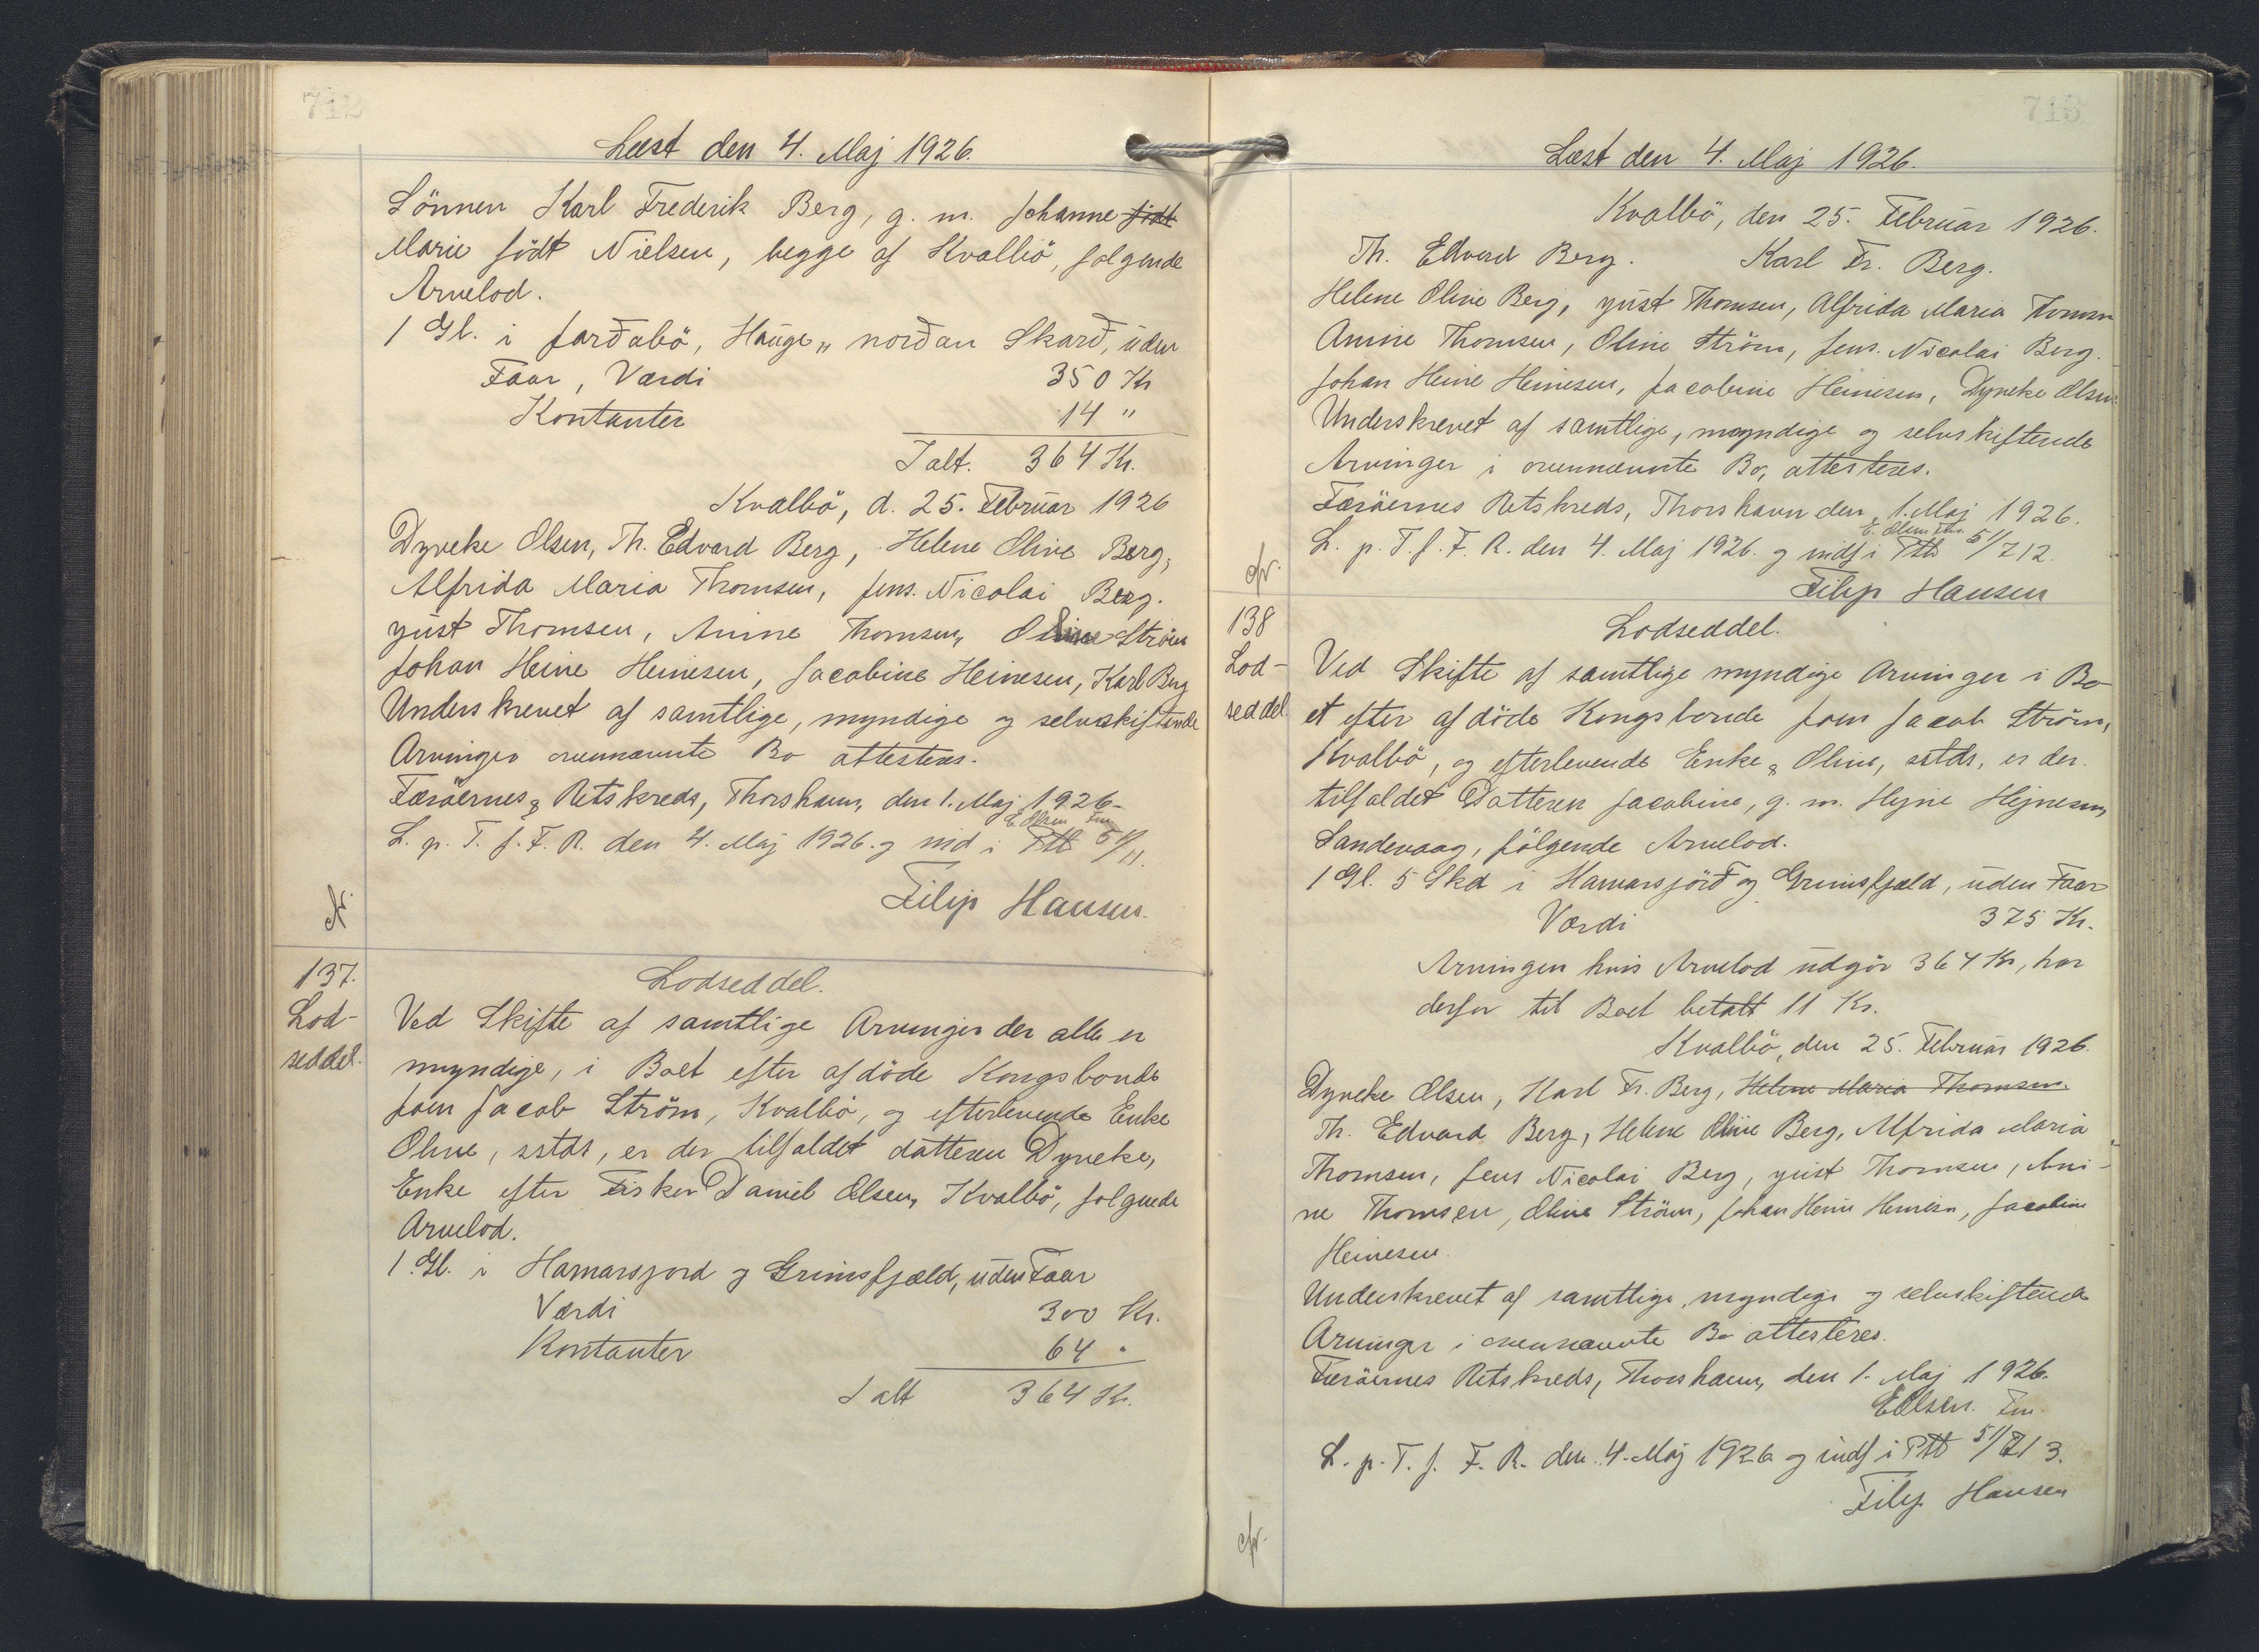 712
Læst den 4. Maj 1926.
Sönnen Karl Frederik Berg, g. m. Johanne födt
Marie födt Nielsen, begge af Kvalbö, folgende
Arvelod.
1 Gl. i Jarðabö, Hauge „ norðan Skarð, uden
Faar, Værdi 350 Kr
Kontanter 14 "
I alt. 364 Kr.
Kvalbö, d. 25. Februar 1926
Dyveke Olsen, Th. Edvard Berg, Helene Olive Berg,
Alfrida Maria Thomsen, Jens. Nicolai Berg.
Just Thomsen, Anine Thomsen, Oline Ström
Johan Heine Heinesen, Jacobine Heinesen, Karl Berg
Underskrevet af samtlige, myndige og selvskiftende
Arvinger ovennævnte Bo attesteres.
Færöernes Retskreds, Thorshavn, den 1. Maj 1926-
E. Olsen Fm
L. p. T. f. F. R. den 4. Maj 1926. og ind i Ptb 51/11.
Filip Hansen.
137. Lodseddel.
Lod- Ved Skifte af samtlige Arvinger der alle er
seddel. myndige, i Boet efter afdöde Kongsbonde
Joen Jacob Ström, Kvalbö, og efterlevende Enke
Oline, sstds, er der tilfaldet datteren Dyveke,
Enke efter Fisker Daniel Olsen, Kvalbö, folgende
Arvelod.
1 Gl. i Hamarsjord og Grimsfjæld, uden Faar
Værdi 300 Kr.
Kontanter 64 "
I alt 364 Kr.
713
Læst den 4. Maj 1926.
Kvalbö, den 25. Februar 1926.
Th. Edvard Berg. Karl Fr. Berg.
Helene Oline Berg, Just Thomsen, Alfrida Maria Thomsen
Anine Thomsen, Oline Ström, Jens. Nicolai Berg.
Johan Heine Heinesen, Jacobine Heinesen, Dyveke Olsen.
Underskrevet af samtlige, myndige og selvskiftende
Arvinger i ovennævnte Bo, attesteres.
Færöernes Retskreds, Thorshavn den 1. Maj 1926.
E. Olsen Fm.
cfr. L. p. T. f. F. R. den 4. Maj 1926. og indf i Ptb 51/712.
Filip Hansen
138 Lodseddel.
Lod- Ved Skifte af samtlige myndige Arvinger i Bo
seddel. et efter afdöde Kongsbonde Joen Jacob Ström,
Kvalbö, og efterlevende Enke Oline, sstds, er der
tilfaldet Datteren Jacobine, g. m. Hejne Hejnesen,
Sandevaag, fölgende Arvelod.
1 Gl. 5 Skd i Hamarsjörð og Grimsfjæld, uden Faar
Værdi 375 Kr.
Arvingen hvis Arvelod udgör 364 Kr, har
derfor til Boet betalt 11 Kr.
Kvalbö, den 25. Februar 1926.
Dyveke Olsen, Karl Fr. Berg, Helene Maria Thomsen
Th. Edvard Berg, Helene Oline Berg, Alfrida Maria
Thomsen, Jens Nicolai Berg, Just Thomsen, Ani-
ne Thomsen, Oline Ström, Johan Heine Heinesen, Jacobine
Heinesen.
Underskrevet af samtlige, myndige og selvskiftende
Arvinger i ovennævnte Bo attesteres.
Færöernes Retskreds, Thorshavn, den 1. Maj 1926.
EOlsen. Fm.
L. p. T. f. F. R. den 4. Maj 1926 og indf i Ptb 51/713.
Filip Hansen
cfr.